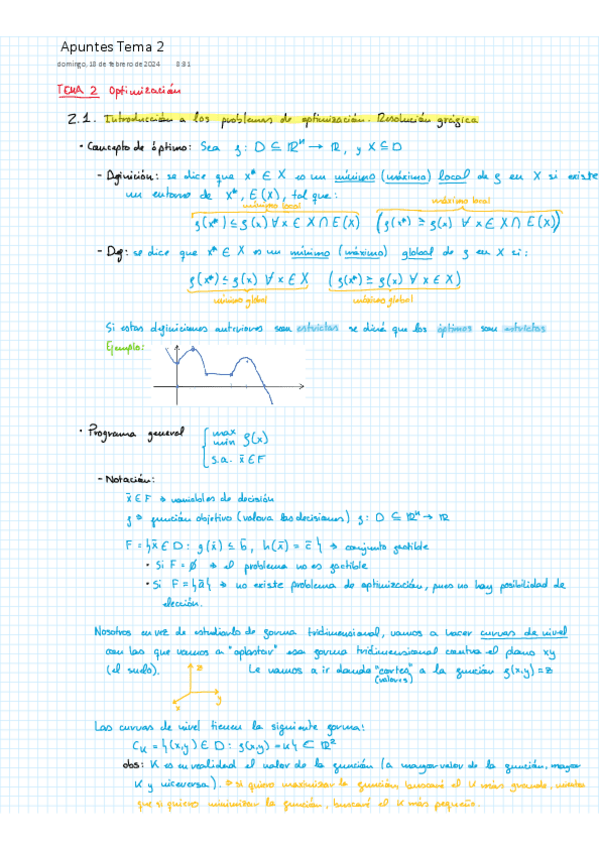 Apuntes Tema 2
domingo, 18 de febrero de 2024 8:31
TEMA 2 Optimización
2.1. Introducción a los problemas de optimización. Resolución gráfica
· Concepto de óptimo: Sea f: D ⊆ ℝⁿ → ℝ, y X ⊆ D
- Definición: se dice que x* ∈ X es un mínimo (máximo) local de f en X si existe
un entorno de x*, E(x), tal que:
mínimo local máximo local
f(x*) ≤ f(x) ∀ x ∈ X ∩ E(x) (f(x*) ≥ f(x) ∀ x ∈ X ∩ E(x))
- Def: se dice que x* ∈ X es un mínimo (máximo) global de f en X si:
f(x*) ≤ f(x) ∀ x ∈ X (f(x*) ≥ f(x) ∀ x ∈ X)
mínimo global máximo global
Si estas definiciones anteriores son estrictas se dirá que los óptimos son estrictos
Ejemplo:
· Programa general { max
min f(x)
s.a. x̄ ∈ F
- Notación:
x̄ ∈ F → variables de decisión
f → función objetivo (valora las decisiones) f: D ⊆ ℝⁿ → ℝ
F = {x̄ ∈ D: g(x̄) ≤ b̄, h(x̄) = c̄} → conjunto factible
· Si F = ∅ → el problema no es factible
· Si F = {ā} → no existe problema de optimización, pues no hay posibilidad de
elección.
Nosotros en vez de estudiarlo de forma tridimensional, vamos a hacer curvas de nivel
con las que vamos a "aplastar" esa forma tridimensional contra el plano xy
(el suelo). Le vamos a ir dando "cortes" a la función f(x,y) = z
(valores)
z
y
x
Las curvas de nivel tienen la siguiente forma:
Cₖ = {(x,y) ∈ D: f(x,y) = k} ⊂ ℝ²
obs: K es en realidad el valor de la función (a mayor valor de la función, mayor
K y viceversa). → si quiero maximizar la función buscaré el K más grande, mientras
que si quiero minimizar la función, buscaré el K más pequeño.